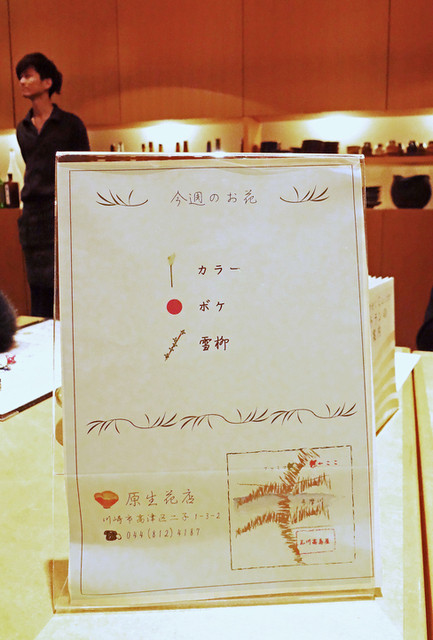 今週のお花
カラー
ボケ
雪柳
原生花店
川崎市高津区二子1-3-2
044(812)4187
ここ